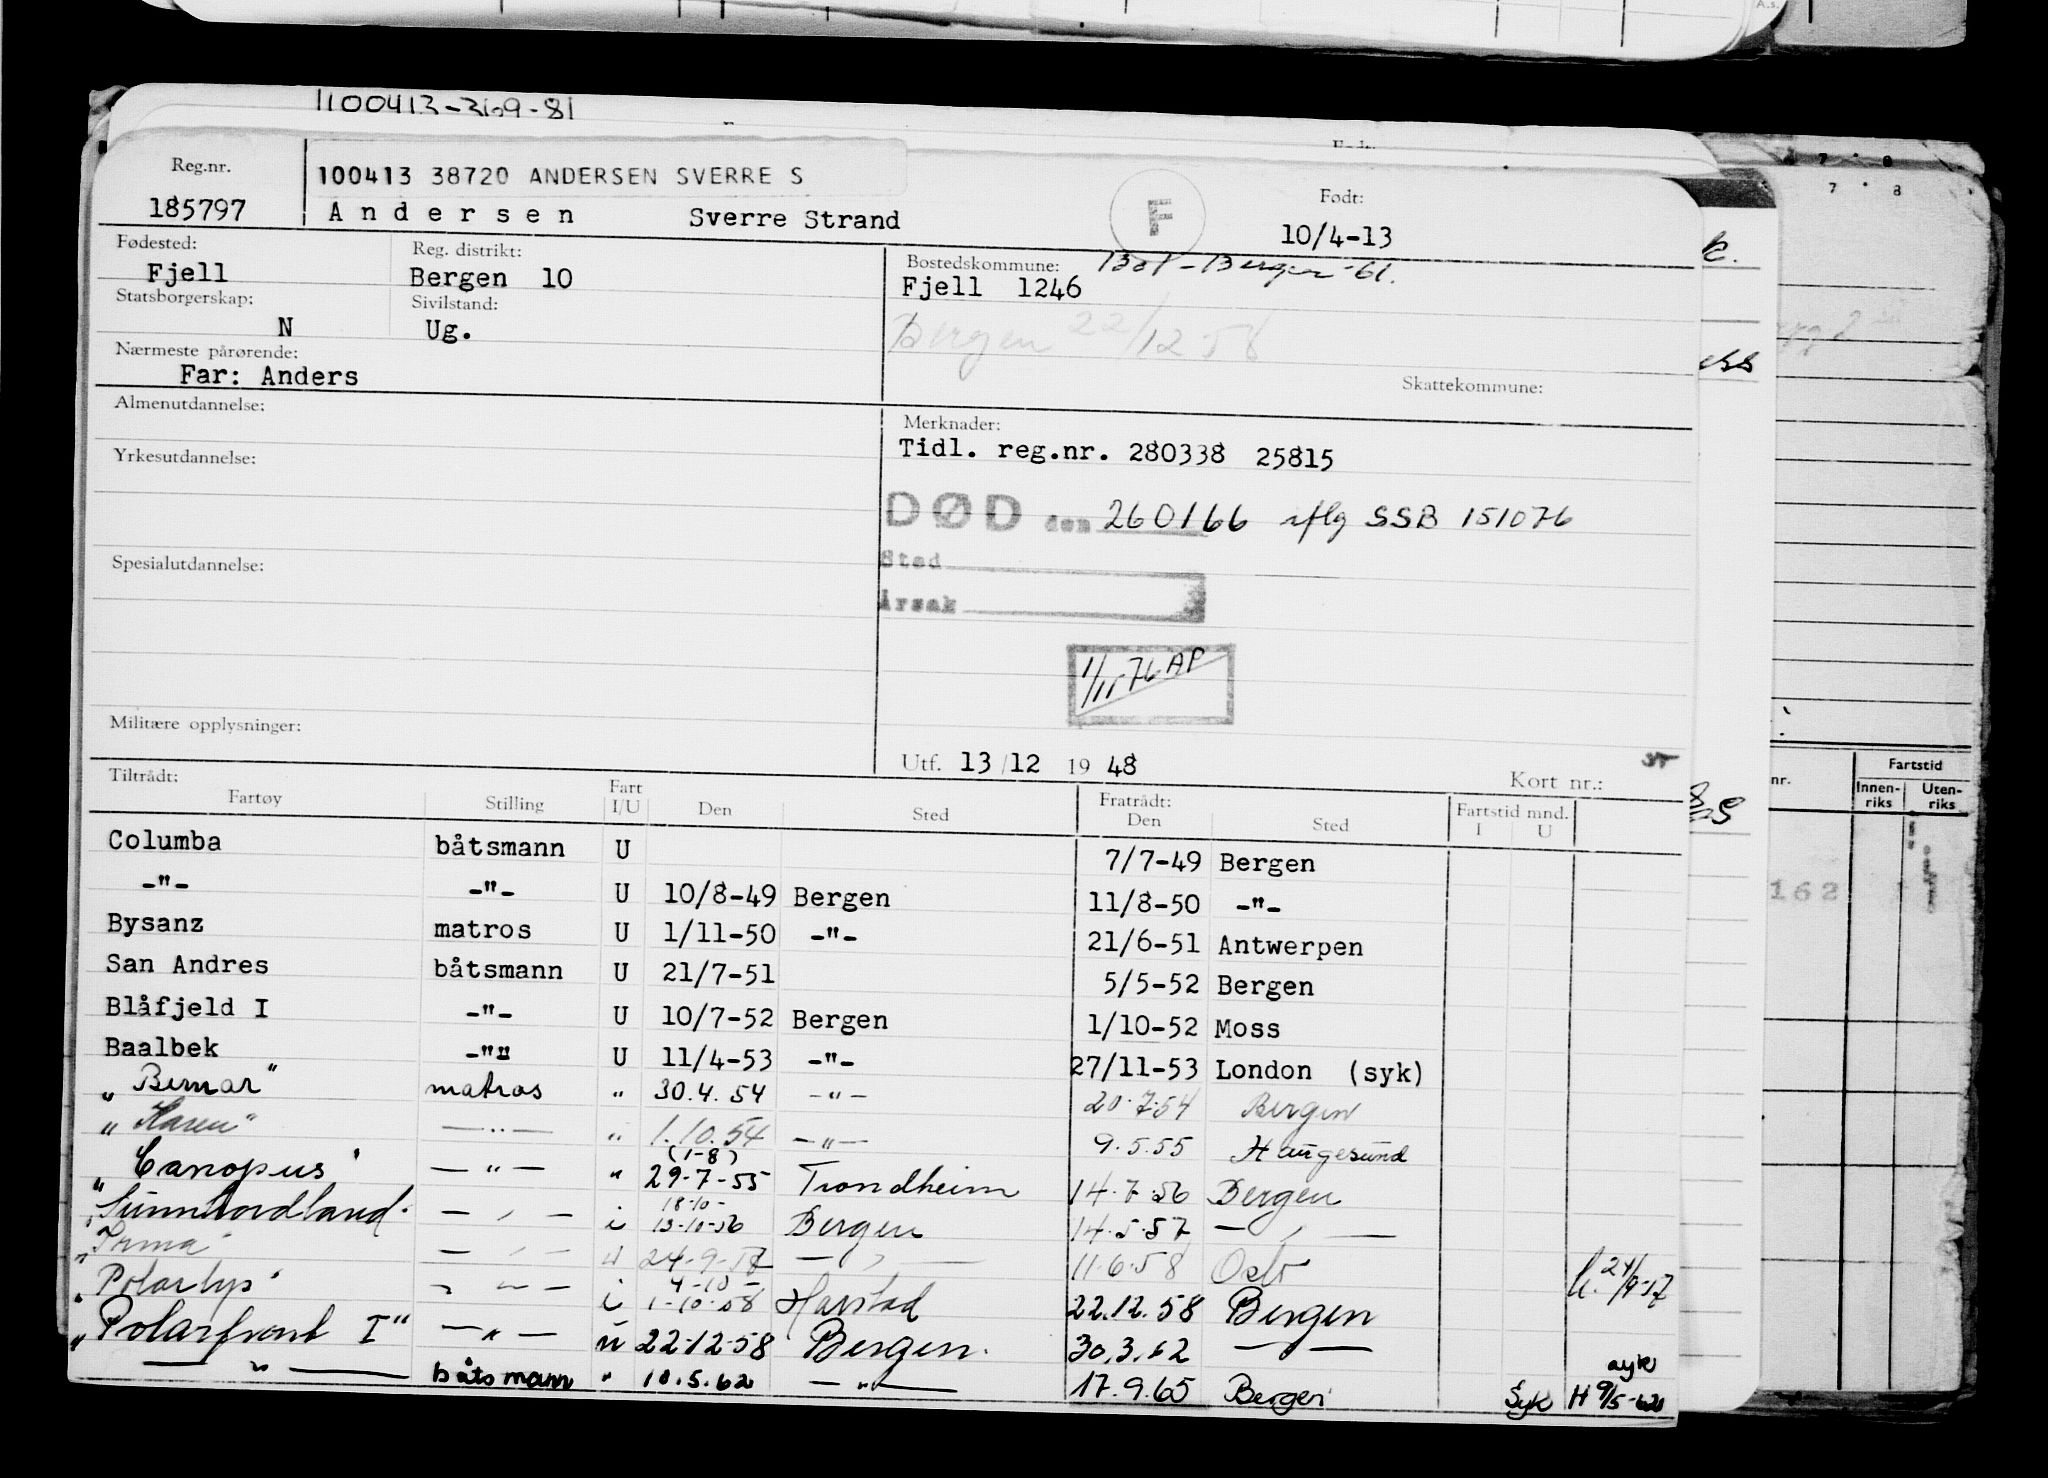 A.s.
1100413-369-81
Reg.nr. 185797
100413 38720 ANDERSEN SVERRE S
Andersen Sverre Strand
F
Født: 10/4-13
Fødested: Fjell
Reg. distrikt: Bergen 10
Bostedskommune: Bergen -61.
Fjell 1246
Statsborgerskap: N
Sivilstand: Ug.
Bergen 22/12 58
Nærmeste pårørende:
Far: Anders
Skattekommune:
Almenutdannelse:
Merknader:
Tidl. reg.nr. 280338 25815
Yrkesutdannelse:
DØD den 260166 iflg SSB 151076
Sted
Årsak
Spesialutdannelse:
1/11-76 AP
Militære opplysninger:
Utf. 13/12 19 48
Kort nr.:
Tiltrådt: Fratrådt:
Fartøy Stilling Fart I/U Den Sted Den Sted Fartstid mnd. I U
Columba båtsmann U 7/7-49 Bergen
-"- -"- U 10/8-49 Bergen 11/8-50 -"-
Bysanz matros U 1/11-50 -"- 21/6-51 Antwerpen
San Andres båtsmann U 21/7-51 5/5-52 Bergen
Blåfjeld I -"- U 10/7-52 Bergen 1/10-52 Moss
Baalbek -"- U 11/4-53 -"- 27/11-53 London (syk)
"Bemar" matros " 30.4.54 -"- 20.7.54 Bergen
"Karen" -"- " 1.10.54 -"- 9.5.55 Haugesund
(1-8)
"Canopus" -"- " 29-7-55 Trondheim 14.7.56 Bergen
18-10-
"Sunnhordland" -"- i 13-10-56 Bergen 14.5.57 -"-
"Irma" -"- 24-9-57 -"- 11.6.58 Oslo 24/9-57
4-10-
"Polarlys" -"- i 1-10-58 Harstad 22.12.58 Bergen
"Polarfront I" -"- u 22-12-58 Bergen. 30.3.62 -"-
syk
-"- båtsmann " 10.5.62 -"- 17.9.65 Bergen Syk H 9/5-62
7 8
7 8
nr.
Fartstid
Innenriks Utenriks
162